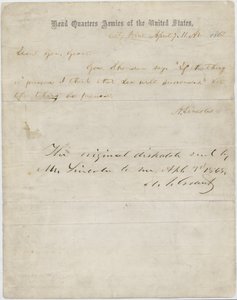 Head Quarters Armies of the United States,
City Point, April 7. 11 AM. 1865
Lieut Gen. Grant.
Gen. Sheridan says "If the thing
is pressed I think that Lee will surrender." Let
the thing be pressed.
A. Lincoln
The original dispatch sent by
Mr. Lincoln to me, Apl. 7th 1865.
U. S. Grant